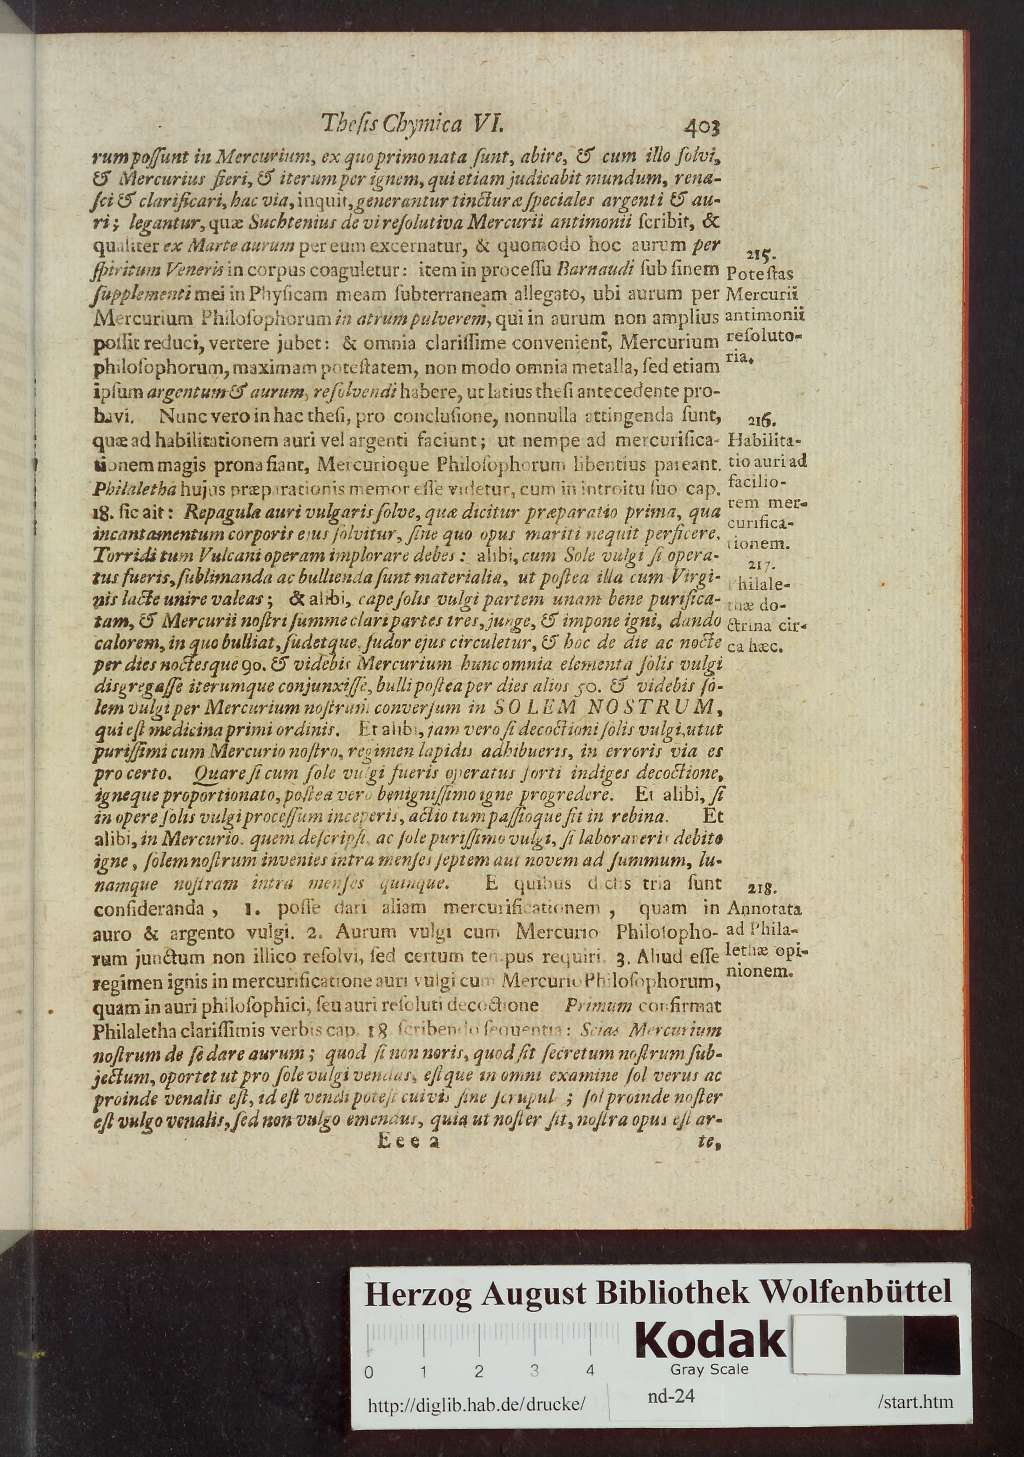 Thesis Chymica VI. 403
rum possunt in Mercurium, ex quo primo nata sunt, abire, & cum illo solvi,
& Mercurius fieri, & iterum per ignem, qui etiam judicabit mundum, rena-
sci & clarificari, hac via, inquit, generantur tincturæ speciales argenti & au-
ri; legantur, quæ Suchtenius de vi resolutiva Mercurii antimonii scribit, &
qualiter ex Marte aurum per eum excernatur, & quomodo hoc aurum per
spiritum Veneris in corpus coaguletur: item in processu Barnaudi sub finem
supplementi mei in Physicam meam subterraneam allegato, ubi aurum per
Mercurium Philosophorum in atrum pulverem, qui in aurum non amplius
possit reduci, vertere jubet: & omnia clarissime convenient, Mercurium
philosophorum, maximam potestatem, non modo omnia metalla, sed etiam
ipsum argentum & aurum, resolvendi habere, ut latius thesi antecedente pro-
bavi. Nunc vero in hac thesi, pro conclusione, nonnulla attingenda sunt,
quæ ad habilitationem auri vel argenti faciunt; ut nempe ad mercurifica-
tionem magis prona fiant, Mercurioque Philosophorum libentius pareant.
Philaletha hujus præparationis memor esse videtur, cum in introitu suo cap.
18. sic ait: Repagula auri vulgaris solve, quæ dicitur præparatio prima, qua
incantamentum corporis ejus solvitur, sine quo opus mariti nequit perficere.
Torridi tum Vulcani operam implorare debes: alibi, cum Sole vulgi si opera-
tus fueris, sublimanda ac bullienda sunt materialia, ut postea illa cum Virgi-
nis lacte unire valeas; & alibi, cape solis vulgi partem unam bene purifica-
tam, & Mercurii nostri summe clari partes tres, junge, & impone igni, dando
calorem, in quo bulliat, sudetque, sudor ejus circuletur, & hoc de die ac nocte
per dies noctesque 90. & videbis Mercurium hunc omnia elementa solis vulgi
disgregasse iterumque conjunxisse, bulli postea per dies alios 50. & videbis so-
lem vulgi per Mercurium nostrum conversum in SOLEM NOSTRUM,
qui est medicina primi ordinis. Et alibi, jam vero si decoctioni solis vulgi, utut
purissimi cum Mercurio nostro, regimen lapidis adhibueris, in erroris via es
pro certo. Quare si cum sole vulgi fueris operatus forti indiges decoctione,
igneque proportionato, postea vero benignissimo igne progredere. Et alibi, si
in opere solis vulgi processum inceperis, actio tum passioque fit in rebina. Et
alibi, in Mercurio, quem descripsi, ac sole purissimo vulgi, si laboraveris debito
igne, solem nostrum invenies intra menses septem aut novem ad summum, lu-
namque nostram intra menses quinque. E quibus dictis tria sunt
consideranda, 1. posse dari aliam mercurificationem, quam in
auro & argento vulgi. 2. Aurum vulgi cum Mercurio Philosopho-
rum junctum non illico resolvi, sed certum tempus requiri. 3. Aliud esse
regimen ignis in mercurificatione auri vulgi cum Mercurio Philosophorum,
quam in auri philosophici, seu auri resoluti decoctione Primum confirmat
Philaletha clarissimis verbis cap. 18 scribendo sequentia: Scias Mercurium
nostrum de se dare aurum; quod si non noris, quod sit secretum nostrum sub-
jectum, oportet ut pro sole vulgi vendas, estque in omni examine sol verus ac
proinde venalis est, id est vendi potest cuivis sine scrupulo; sol proinde noster
est vulgo venalis, sed non vulgo emendus, quia ut noster sit, nostra opus est ar-
Eeee a te,
215.
Potestas
Mercurii
antimonii
resoluto-
ria.
216.
Habilita-
tio auri ad
facilio-
rem mer-
curifica-
tionem.
217.
Philale-
thæ do-
ctrina cir-
ca hæc.
218.
Annotata
ad Phila-
lethæ opi-
nionem.
Herzog August Bibliothek Wolfenbüttel
Kodak
Gray Scale
0 1 2 3 4
http://diglib.hab.de/drucke/ nd-24 /start.htm